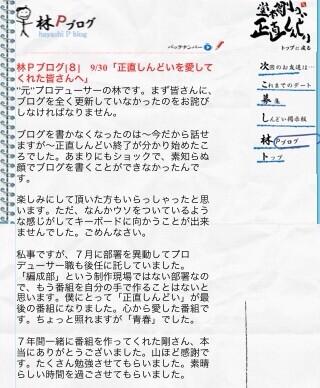 林Pブログ
hayashi P blog
バックナンバー
堂本剛の
正直しんどい
トップに戻る
次回のお友達は…
これまでのデート
募集
しんどい掲示板
林Pブログ
トップ
林Pブログ[8] 9/30「正直しんどいを愛して
くれた皆さんへ」
"元"プロデューサーの林です。まず皆さんに、
ブログを全く更新していなかったのをお詫び
しなければなりません。
ブログを書かなくなったのは〜今だから話せ
ますが〜正直しんどい終了が分かり始めたこ
ろでした。あまりにもショックで、素知らぬ
顔でブログを書くことができなかったんで
す。
楽しみにして頂いた方もいらっしゃったと思
います。ただ、なんかウソをついているよう
な感じがしてキーボードに向かうことが出来
ませんでした。ごめんなさい。
私事ですが、7月に部署を異動してプロ
デューサー職も後任に託していました。
「編成部」という制作現場ではない部署なの
で、もう番組を自分の手で作ることはないと
思います。僕にとって「正直しんどい」が最
後の番組になりました。心から愛した番組で
す。ちょっと照れますが「青春」でした。
7年間一緒に番組を作ってくれた剛さん、本
当にありがとうございました。山ほど感謝で
す。たくさん勉強させてもらいました。素晴
らしい時間を過ごさせてもらいました。